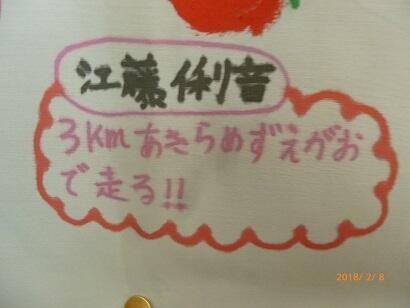 江藤俐音
3kmあきらめずえがお
で走る!!
2018/2/8